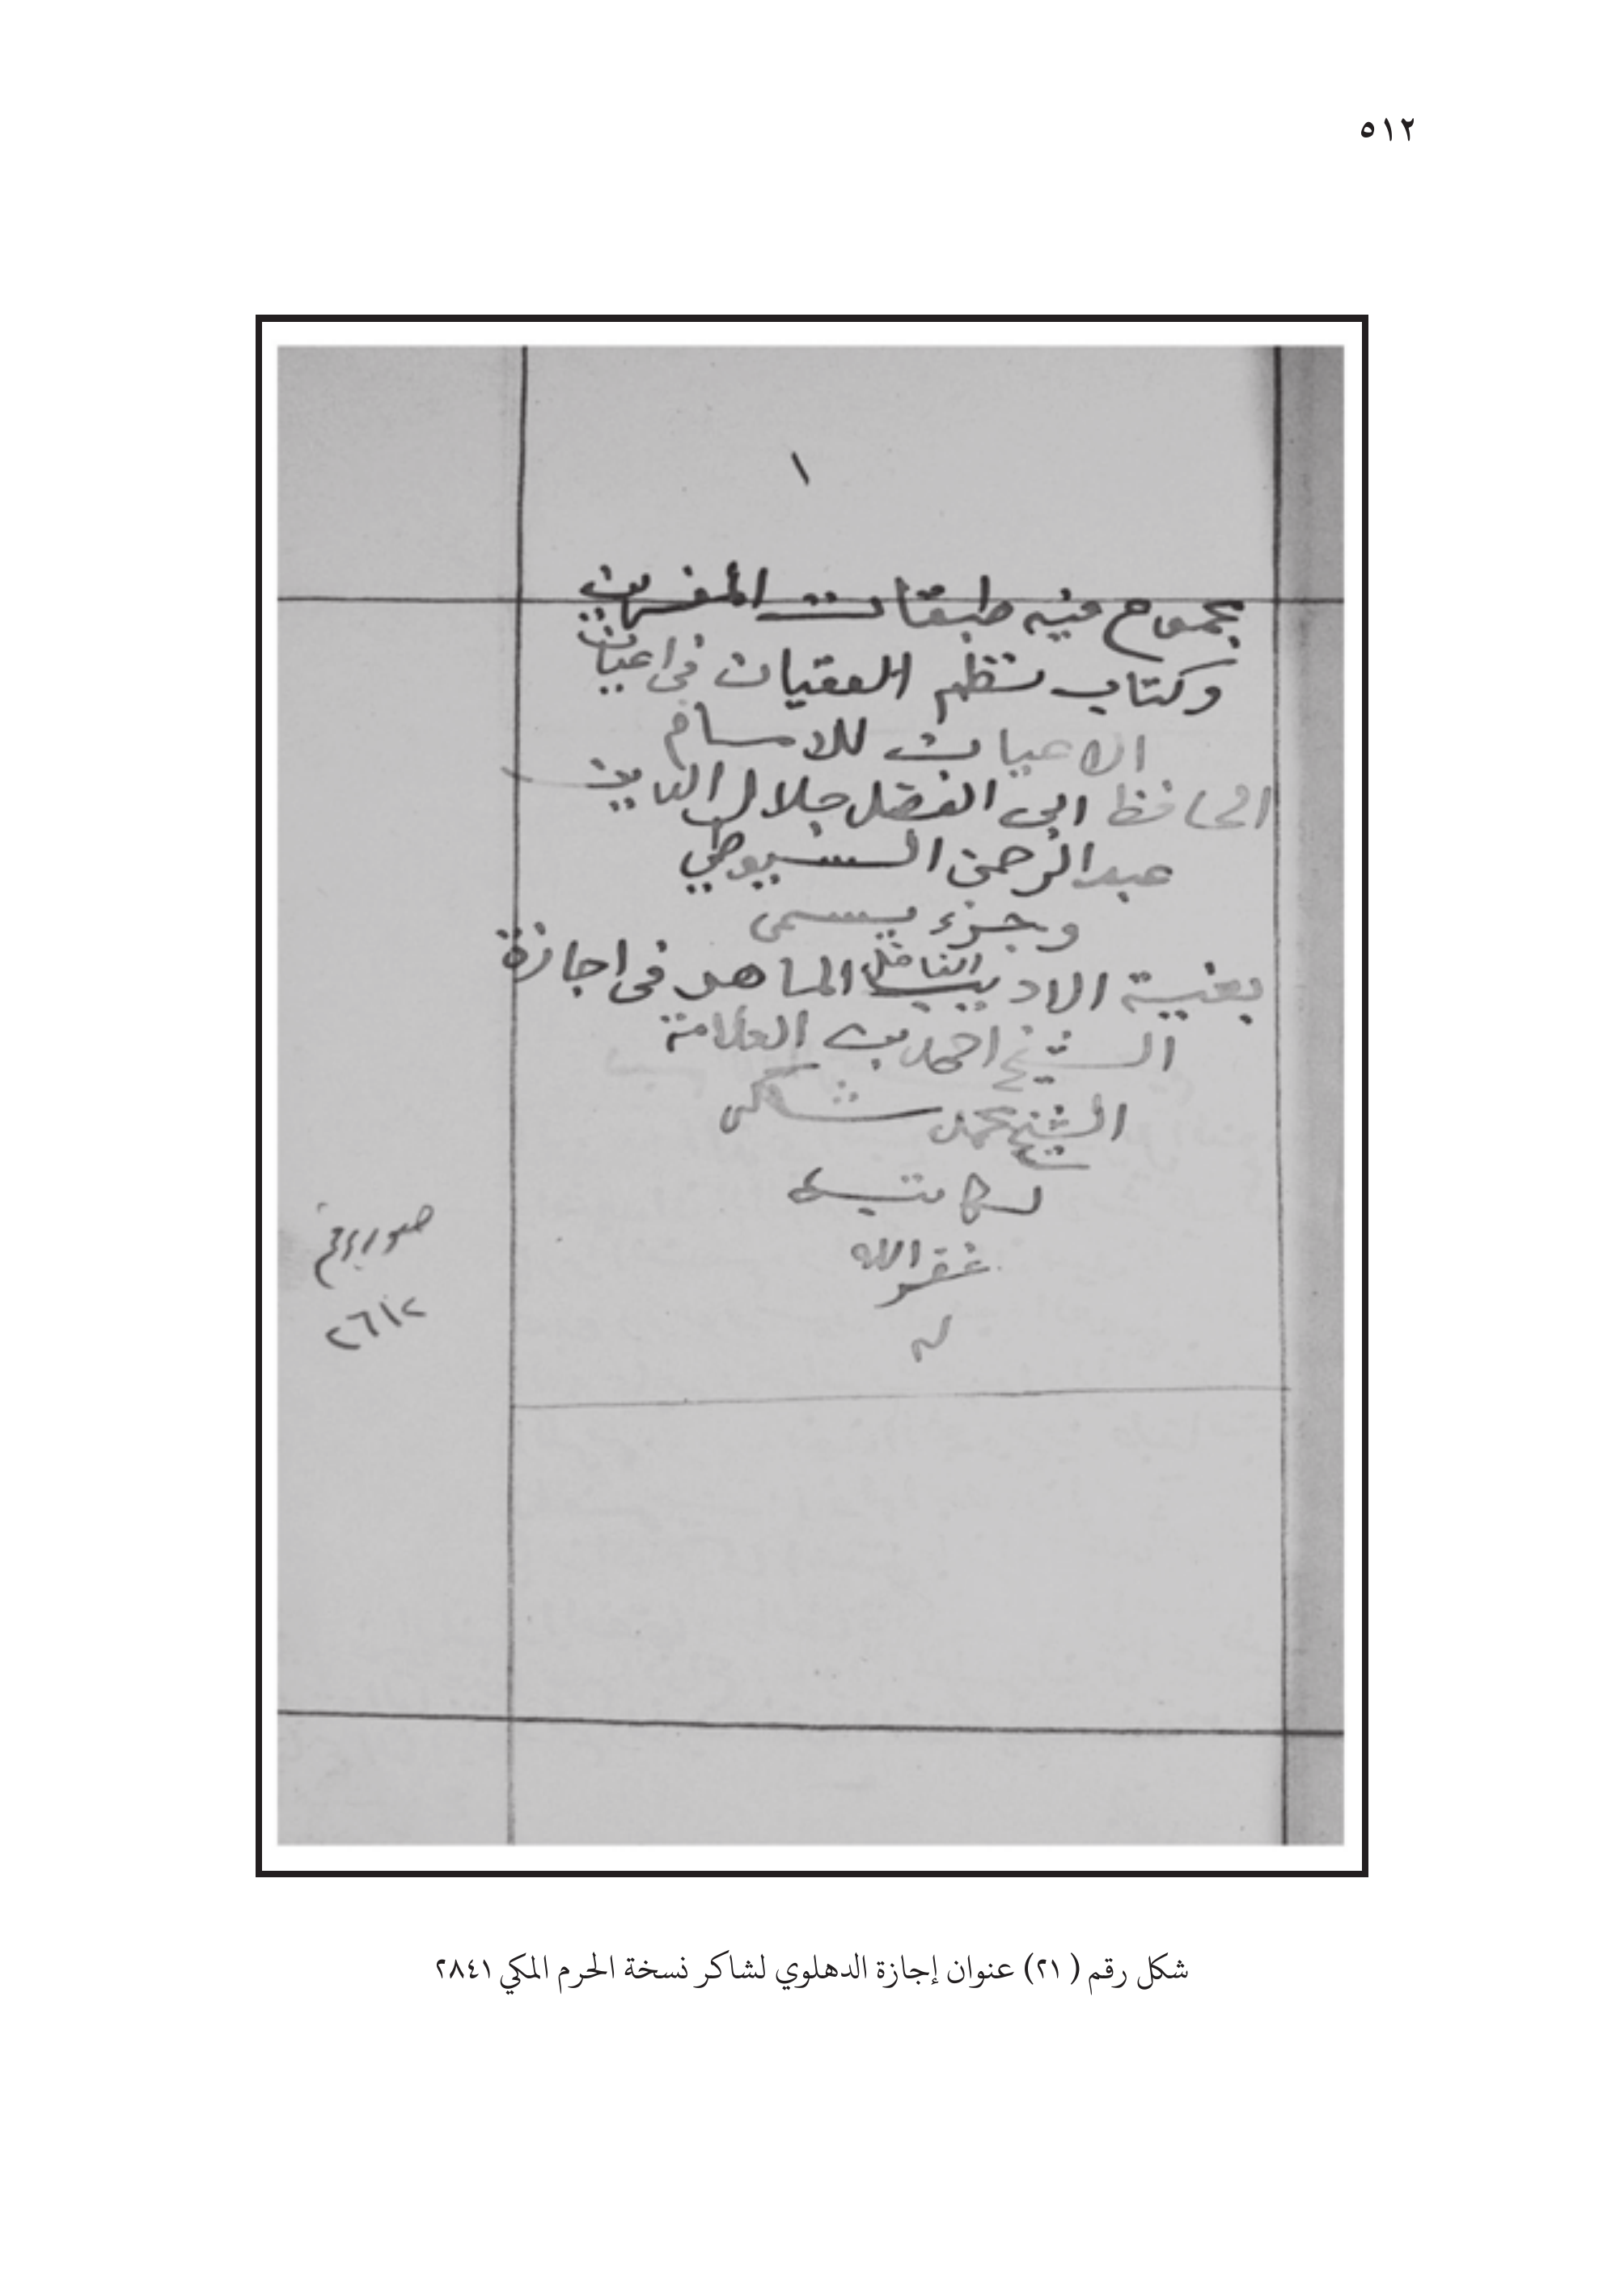 ٥١٢
١
مجموع فيه طبقات المفسرين
وكتاب نظم العقيان في اعيان
الاعيان للامام
الحافظ ابي الفضل جلال الدين
عبد الرحمن السيوطي
وجزء يسمى
بغية الاديب الماهر في اجازة
الشيخ احمد بن العلامة
الشيخ محمد شاكر
لكاتبه
غفر الله
له
صور برقم
٢٦١٢
شكل رقم ( ٢١) عنوان إجازة الدهلوي لشاكر نسخة الحرم المكي ٢٨٤١